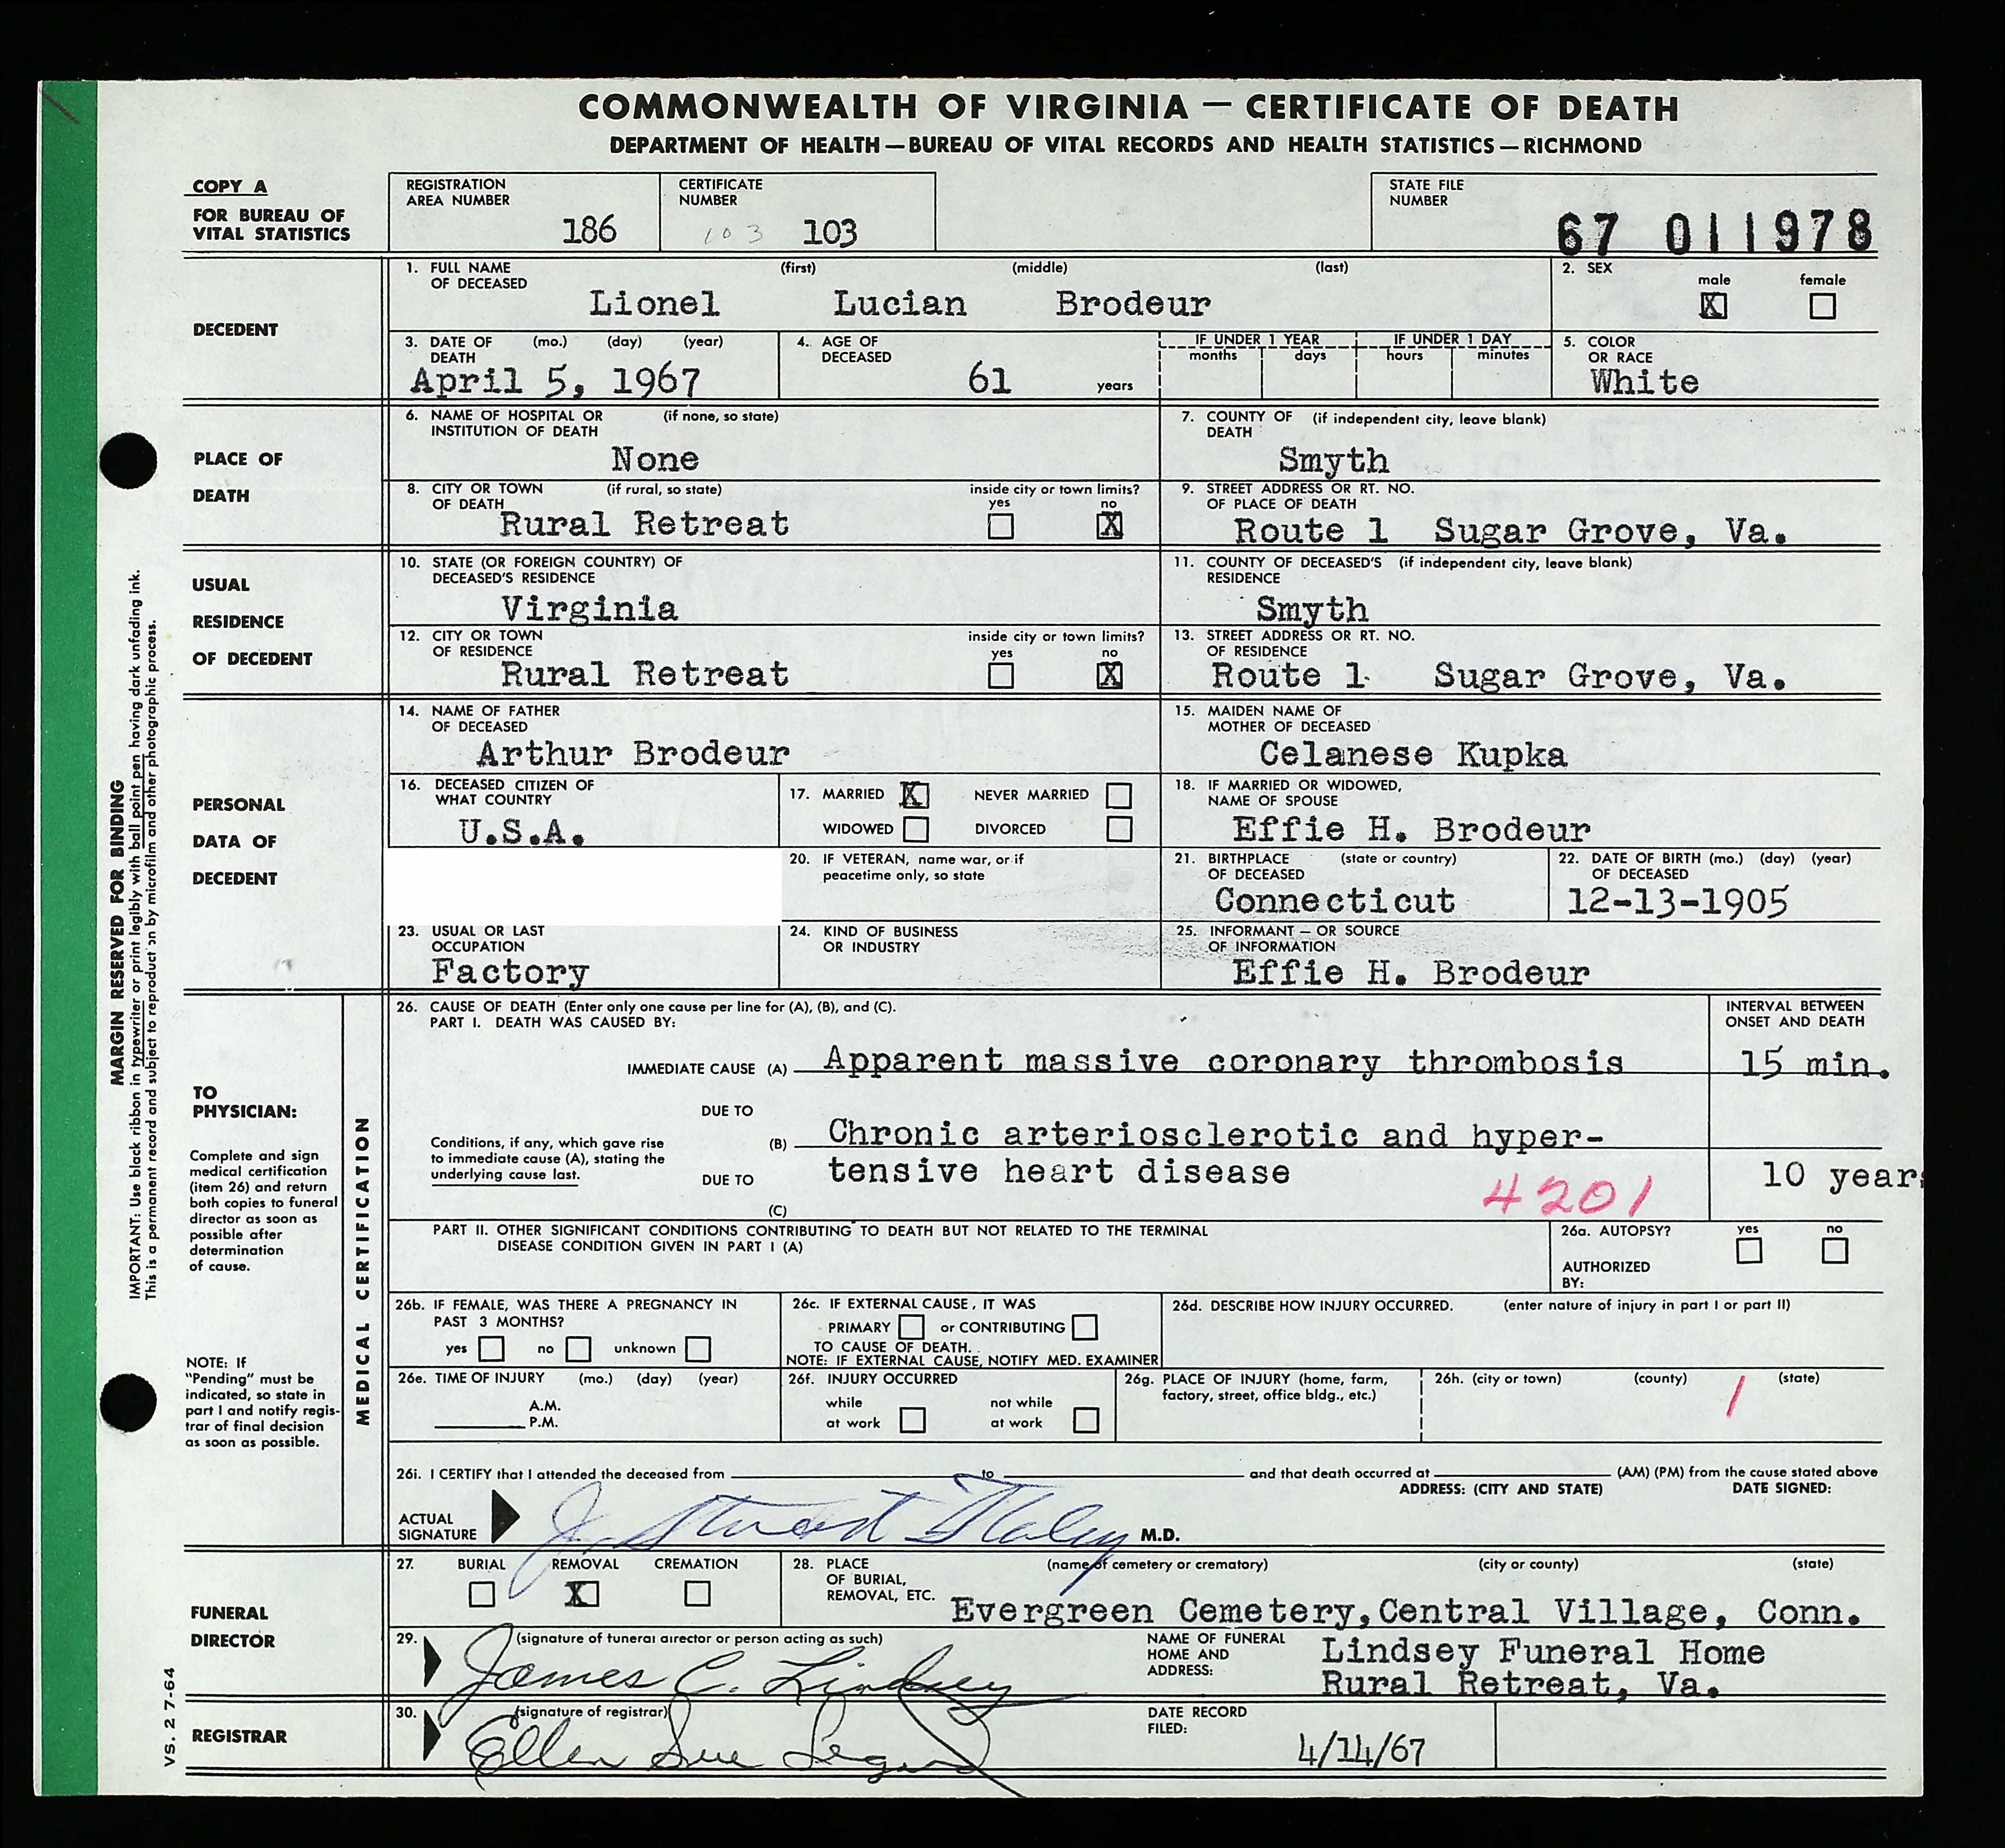 COMMONWEALTH OF VIRGINIA — CERTIFICATE OF DEATH
DEPARTMENT OF HEALTH — BUREAU OF VITAL RECORDS AND HEALTH STATISTICS — RICHMOND
COPY A
FOR BUREAU OF
VITAL STATISTICS
REGISTRATION
AREA NUMBER
186
CERTIFICATE
NUMBER
103 103
STATE FILE
NUMBER
67 011978
DECEDENT
1. FULL NAME (first) (middle) (last)
OF DECEASED
Lionel Lucian Brodeur
2. SEX
male female
X
3. DATE OF (mo.) (day) (year)
DEATH
April 5, 1967
4. AGE OF
DECEASED
61 years
IF UNDER 1 YEAR IF UNDER 1 DAY
months days hours minutes
5. COLOR
OR RACE
White
PLACE OF
DEATH
6. NAME OF HOSPITAL OR (if none, so state)
INSTITUTION OF DEATH
None
7. COUNTY OF (if independent city, leave blank)
DEATH
Smyth
8. CITY OR TOWN (if rural, so state) inside city or town limits?
OF DEATH yes no
Rural Retreat X
9. STREET ADDRESS OR RT. NO.
OF PLACE OF DEATH
Route 1 Sugar Grove, Va.
USUAL
RESIDENCE
OF DECEDENT
10. STATE (OR FOREIGN COUNTRY) OF
DECEASED'S RESIDENCE
Virginia
11. COUNTY OF DECEASED'S (if independent city, leave blank)
RESIDENCE
Smyth
12. CITY OR TOWN inside city or town limits?
OF RESIDENCE yes no
Rural Retreat X
13. STREET ADDRESS OR RT. NO.
OF RESIDENCE
Route 1 Sugar Grove, Va.
PERSONAL
DATA OF
DECEDENT
14. NAME OF FATHER
OF DECEASED
Arthur Brodeur
15. MAIDEN NAME OF
MOTHER OF DECEASED
Celanese Kupka
16. DECEASED CITIZEN OF
WHAT COUNTRY
U.S.A.
17. MARRIED X NEVER MARRIED
WIDOWED DIVORCED
18. IF MARRIED OR WIDOWED,
NAME OF SPOUSE
Effie H. Brodeur
20. IF VETERAN, name war, or if
peacetime only, so state
21. BIRTHPLACE (state or country)
OF DECEASED
Connecticut
22. DATE OF BIRTH (mo.) (day) (year)
OF DECEASED
12-13-1905
23. USUAL OR LAST
OCCUPATION
Factory
24. KIND OF BUSINESS
OR INDUSTRY
25. INFORMANT — OR SOURCE
OF INFORMATION
Effie H. Brodeur
MARGIN RESERVED FOR BINDING
IMPORTANT: Use black ribbon in typewriter or print legibly with ball point pen having dark unfading ink.
This is a permanent record and subject to reproduction by microfilm and other photographic process.
TO
PHYSICIAN:
Complete and sign
medical certification
(item 26) and return
both copies to funeral
director as soon as
possible after
determination
of cause.
NOTE: If
"Pending" must be
indicated, so state in
part I and notify regis-
trar of final decision
as soon as possible.
MEDICAL CERTIFICATION
26. CAUSE OF DEATH (Enter only one cause per line for (A), (B), and (C).
PART I. DEATH WAS CAUSED BY:
INTERVAL BETWEEN
ONSET AND DEATH
IMMEDIATE CAUSE (A) Apparent massive coronary thrombosis 15 min.
DUE TO
Conditions, if any, which gave rise
to immediate cause (A), stating the
underlying cause last.
(B) Chronic arteriosclerotic and hyper-
tensive heart disease 10 year
DUE TO
4201
(C)
PART II. OTHER SIGNIFICANT CONDITIONS CONTRIBUTING TO DEATH BUT NOT RELATED TO THE TERMINAL
DISEASE CONDITION GIVEN IN PART I (A)
26a. AUTOPSY? yes no
AUTHORIZED
BY:
26b. IF FEMALE, WAS THERE A PREGNANCY IN
PAST 3 MONTHS?
yes no unknown
26c. IF EXTERNAL CAUSE, IT WAS
PRIMARY or CONTRIBUTING
TO CAUSE OF DEATH.
NOTE: IF EXTERNAL CAUSE, NOTIFY MED. EXAMINER
26d. DESCRIBE HOW INJURY OCCURRED. (enter nature of injury in part I or part II)
26e. TIME OF INJURY (mo.) (day) (year)
A.M.
P.M.
26f. INJURY OCCURRED
while not while
at work at work
26g. PLACE OF INJURY (home, farm,
factory, street, office bldg., etc.)
26h. (city or town) (county) (state)
1
26i. I CERTIFY that I attended the deceased from to and that death occurred at (AM) (PM) from the cause stated above
ADDRESS: (CITY AND STATE) DATE SIGNED:
ACTUAL
SIGNATURE
J. Stuart Staley M.D.
FUNERAL
DIRECTOR
27. BURIAL REMOVAL CREMATION
X
28. PLACE (name of cemetery or crematory) (city or county) (state)
OF BURIAL,
REMOVAL, ETC.
Evergreen Cemetery, Central Village, Conn.
29. (signature of funeral director or person acting as such)
James C. Lindsey
NAME OF FUNERAL
HOME AND
ADDRESS:
Lindsey Funeral Home
Rural Retreat, Va.
REGISTRAR
30. (signature of registrar)
Ellen Sue
DATE RECORD
FILED:
4/14/67
VS. 2 7-64